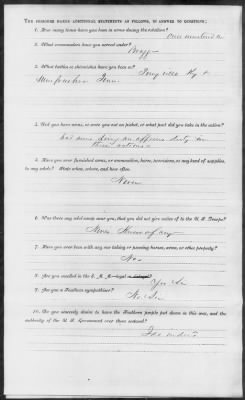 THE PRISONER MAKES ADDITIONAL STATEMENTS AS FOLLOWS, IN ANSWER TO QUESTIONS:
1. How many times have you been in arms during the rebellion?
Once mustered in
2. What commanders have you served under?
Bragg
3. What battles or skirmishes have you been in?
Perryville Ky &
Murfresboro Tenn
4. Did you have arms, or were you out on picket, or what part did you take in the action?
had arms doing an officers duty in
those actions
5. Have you ever furnished arms, or ammunition, horse, provisions, or any kind of supplies,
to any rebels? State when, where, and how often.
Never
6. Was there any rebel camp near you, that you did not give notice of to the U. S. Troops?
Never Knew of any
7. Have you ever been with any one taking or pressing horses, arms, or other property?
No
8. Are you enrolled in the
Yes Sir
9. Are you a Southern sympathizer?
No Sir
10. Do you sincerely desire to have the Southern people put down in this war, and the
authority of the U. S. Government over them restored?
I do